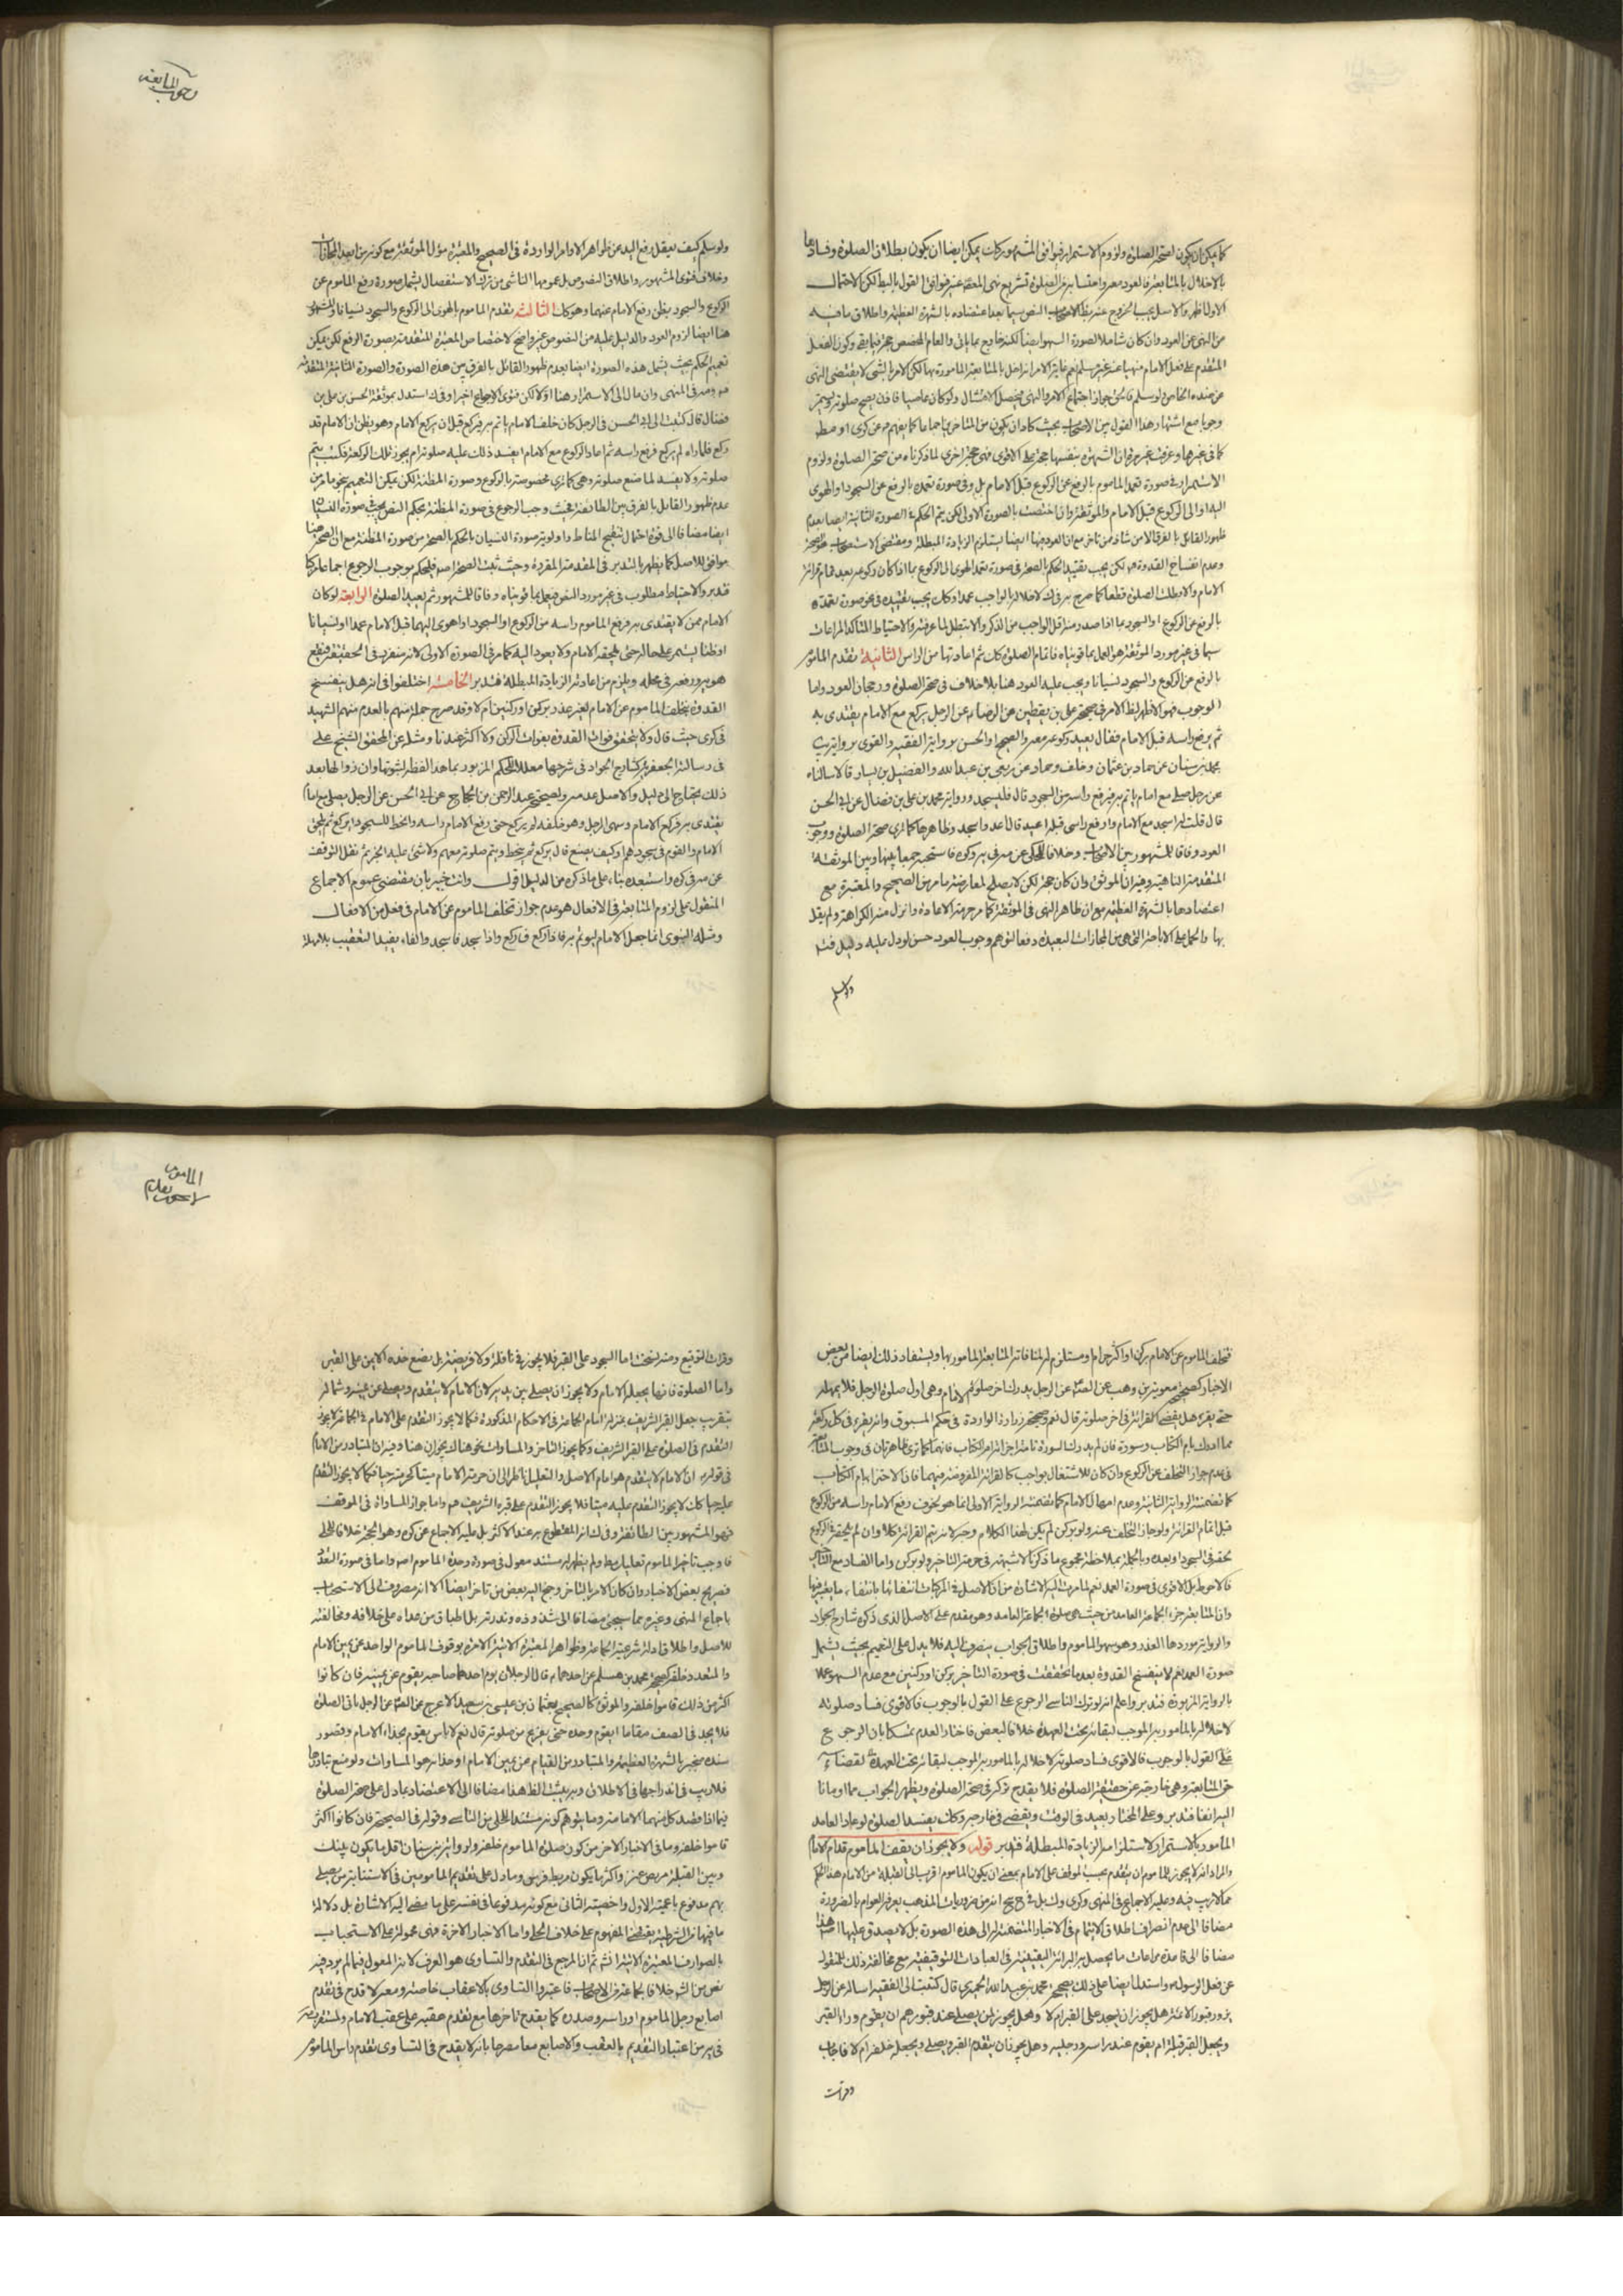 كما يمكن ان يكون لصحة الصلوة ولزوم الاستمرار فيوافق المشهور كك يمكن ايضا ان يكون بطلان الصلوة وفسادها
بالاخلال بالمتابعة فالعود
الاول اظهر والاصل يجب الخروج عنه بظاهر النص سيما بعد اعتضاده بالشهرة العظيمة واطلاق ما فيه
من النهى عن العود وان كان شاملا لصورة السهو ايضا لكنه والعام المخصص حجة فيما بقى وكون الفعل
المتقدم على فعل الامام منهيا عنه غير مسلم نعم غايته الامر انه اخل بالمتابعة المامور بها لكن الامر بالشى لا يقتضى النهى
عن ضده الخاص ولو سلم اجتماع الامر والنهى فيحصل الامتثال ولو كان عاصيا فاذن يصح صلوته ويستمر
وجوبا مع اشتهار هذا القول بين الاصحاب بحيث كاد ان يكون من المتاخرين اجماعا كما يفهم من عن كرى او
كما فى غيرها وعرفت غير مرة ان الشهرة بنفسها حجة على الاقوى فهى حجة اخرى لما ذكرناه من صحة الصلوة ولزوم
الاستمرار فى صورة تعمد الماموم بالرفع عن الركوع قبل الامام بل وفى صورة تعمده بالرفع عن السجود او الهوى
اليه او الى الركوع قبل الامام والموثقة وان اختصت بالصورة الاولى لكن يتم الحكم فى الصورة الثانية ايضا بعدم
ظهور القائل بالفرق الا من شاذ ممن تاخر مع ان العود فيها ايضا يستلزم الزيادة المبطلة ومقتضى الاستصحاب
وعدم انفساخ القدوة لكن يجب تقييد الحكم بالصحة فى صورة تعمد الهوى الى الركوع بما اذا كان ركوعه بعد تمام قرائة
الامام والا بطلت الصلوة قطعا كما صرح به فى لك لاخلاله بالواجب عمدا وكك يجب تقييده فى صورة تعمده
بالرفع عن الركوع او السجود بما اذا صدر منه اقل الواجب من الذكر والا بتطل لما عرفته والاحتياط المتاكد المراعات
سيما فى غير مورد الموثقة هو العمل بما قويناه فاتمام الصلوة كك ثم اعادتها من الراس الثانية تقدم الماموم
بالرفع من الركوع والسجود نسيانا ويجب عليه العود هنا بلا خلاف فى صحة الصلوة ورجحان العود واما
الوجوب فهو الاظهر لظ الامر فى صحيحة على بن يقطين عن الرضا عن الرجل يركع مع الامام يقتدى به
ثم يرفع راسه قبل الامام فقال يعيد ركوعه معه والصحيح او الحسن برواية الفقيه والقوى برواية يب
محمد بن سنان عن حماد بن عثمان وخلف وحماد عن ربعى بن عبد الله والفضيل بن يسار قالا سالناه
عن رجل صلى مع امام ياتم به فرفع راسه من السجود قال فليسجد ورواية محمد بن على بن فضال عن ابى الحسن
قال قلت له اسجد مع الامام وارفع راسى قبله اعيد قال اعد واسجد وظاهرها كما ترى صحة الصلوة ووجوب
العود وفاقا للمشهور بين الاصحاب وخلافا للمحكى عن فاستحبه جمعا بينها وبين الموثقة
المتقدمة الناهية وفيه ان الموثق وان كان حجة لكن لا يصلح لمعارضة ما مر من الصحيح والمعتبرة مع
اعتضادها بالشهرة العظيمة مع ان ظاهر النهى فى الموثقة كما مر حرمة الاعادة وانزل منه الكراهة ولم يقل
بها والحمل على الاباحة التى هى من المجازات البعيدة دفعا لتوهم وجوب العود حسن لو دل عليه دليل
ولو سلم
وجوب المتابعة
ولو سلم كيف يعقل رفع اليد عن ظواهر الاوامر الواردة فى الصحيح والمعتبرة مؤل الموثقة مع كونه من ابعد المجازات
وخلاف فتوى المشهور واطلاق النصوص بل عمومها الناشى من ترك الاستفصال يشمل صورة رفع الماموم عن
الركوع والسجود بظن رفع الامام عنهما وهو كك الثالثة تقدم الماموم بالهوى الى الركوع والسجود نسيانا والمشهور
هنا ايضا لزوم العود والدليل عليه من النصوص غير واضح لاختصاص المعتبرة المتقدمة بصورة الرفع لكن يمكن
تعميم الحكم بحيث يشمل هذه الصورة ايضا بعدم ظهور القائل بالفرق بين هذه الصورة والصورة الثانية المتقدمة
فى المنهى وان مال الى الاستمرار هنا اولا لكن فتوى الاجماع اخيرا وفى ك استدل بموثقة الحسن بن على بن
فضال قال كتبت الى ابى الحسن فى الرجل كان خلف الامام ياتم به فيركع قبل ان يركع الامام وهو يظن ان الامام قد
ركع فلما راه لم يركع فرفع راسه ثم اعاد الركوع مع الامام ايفسد ذلك عليه صلوته ام يجوز تلك الركعة فكتب يتم
صلوته ولا يفسد لما صنع صلوته وهى كما ترى مخصوصة بالركوع وصورة المظنة لكن يمكن التعميم بنحو ما مر من
عدم ظهور القائل بالفرق بين الطائفة فحيث وجب الرجوع فى صورة المظنة بحكم النص يجب فى صورة النسيان
ايضا مضافا الى قوة احتمال تنقيح المناط واولوية صورة النسيان بالحكم بالصحة من صورة المظنة مع ان الصحة هنا
موافق للاصل كما يظهر بالتدبر فى المقدمة المفردة وحيث ثبت الصحة فليحكم بوجوب الرجوع اجماعا
فتدبر والاحتياط مطلوب فى غير مورد النص فيعمل بما قويناه وفاقا للمشهور ثم يعيد الصلوة الرابعة لو كان
الامام ممن لا يقتدى به فرفع الماموم راسه من الركوع او السجود او اهوى اليهما قبل الامام عمدا او نسيانا
او ظنا يستمر على حاله حتى يلحقه الامام ولا يعود اليه كما مر فى الصورة الاولى لانه منفرد فى الحقيقة فيقع
هويه ورفعه فى محله ويلزم من اعادته الزيادة المبطلة فتدبر الخامسة اختلفوا فى انه هل ينفسخ
القدوة بتخلف الماموم عن الامام لغير عذر بركن او ركنين ام لا وقد صرح جملة منهم بالعدم منهم الشهيد
فى كرى حيث قال ولا يتحقق فوات القدوة بفوات الركن ولا اكثر عندنا ومثله عن المحقق الشيخ على
فى رسالته الجعفرية كشارح الجواد فى شرحها معللا للحكم المزبور بما هذا لفظه لثبوتها وان زوالها بعد
ذلك يحتاج الى دليل والاصل عدمه ولصحيحة عبد الرحمن بن الحجاج عن ابى الحسن عن الرجل يصلى مع امام
يقتدى به فركع الامام وسهى الرجل وهو خلفه لم يركع حتى رفع الامام راسه وانحط للسجود ايركع ثم يلحق
الامام والقوم فى سجودهم او كيف يصنع قال يركع ثم ينحط ويتم صلوته معهم ولا شئ عليه الخبر ثم نقل التوقف
عن واستبعده بناء على ما ذكره من الدليل اقول وانت خبير بان مقتضى عموم الاجماع
المنقول على لزوم المتابعة فى الافعال هو عدم جواز تخلف الماموم عن الامام فى فعل من الافعال
ومثله النبوى انما جعل الامام ليؤتم به فاذا ركع فاركع واذا سجد فاسجد والفاء يفيد التعقيب بلا مهلة
فتخلف الماموم عن الامام بركن او اكثر حرام ومستلزم لمنافاته المتابعة المامور بها ويستفاد ذلك ايضا من بعض
الاخبار كصحيحة معوية بن وهب عن الصم عن الرجل يدرك اخر صلوة الامام وهى اول صلوة الرجل فلا يمهله
حتى يقرء هل يقضى القرائة فى اخر صلوته قال نعم وصحيحة زرارة الواردة فى حكم المسبوق وانه يقرء فى كل ركعة
مما ادرك بام الكتاب وسورة فان لم يدرك السورة تامة اجزائه ام الكتاب فانهما كما ترى ظاهرتان فى وجوب المتابعة
فى عدم جواز التخلف عن الركوع وان كان للاشتغال بواجب كالقرائة المفروضة فيهما فان الاجتزاء بام الكتاب
كما تضمنته الرواية الثانية وعدم امهال الامام كما تضمنته الرواية الاولى انما هو لخوف رفع الامام راسه من الركوع
قبل اتمام القرائة ولو جاز التخلف عنه ولو بركن لم يكن لهذا الكلام وجه لانه يتم القرائة كلا وان لم يلحقه فى الركوع
لحقه فى السجود او بعده وبالجملة بملاحظة مجموع ما ذكرنا لا شبهة فى حرمة التاخر ولو بركن واما الفساد مع التاخير
فالاحوط بل الاقوى فى صورة العمد نعم لما مرت اليه الاشارة من ان الاصل فى المركبات انتفائها بانتفاء ما يعتبر فيها
وان المتابعة جزء الجماعة العامد من حيث هى صلوة الجماعة للعامد وهو مقدم على الاصل الذى ذكره شارح الجواد
والرواية موردها العذر وهو سهو الماموم واطلاق الجواب ينصرف اليه فلا يدل على التعميم بحيث يشمل
صورة العمد نعم لا ينفسخ القدوة بعد ما تحققت فى صورة التاخر بركن او ركنين مع عدم السهو عملا
بالرواية المزبورة فتدبر واعلم انه لو ترك الناسى الرجوع على القول بالوجوب فالاقوى فساد صلوته
لاخلاله بالمامور به الموجب لبقائه تحت العهدة خلافا لبعض فاختار العدم تمسكا بان الرجوع
على القول بالوجوب فالاقوى فساد صلوته لاخلاله بالمامور به الموجب لبقائه تحت العهدة لقضاء
حق المتابعة وهى خارجة عن حقيقة الصلوة فلا يقدح تركه فى صحة الصلوة ويظهر الجواب مما اومانا
اليه انفا فتدبر وعلى المختار يعيد فى الوقت ويقضى فى خارجه وكك يفسد الصلوة لو عاد العامد
المامور بالاستمرار لاستلزامه الزيادة المبطلة فتدبر قوله ولا يجوز ان يقف الماموم قدام الامام
والمراد انه لا يجوز للماموم ان يتقدم بحسب الموقف على الامام بمعنى ان يكون الماموم اقرب الى القبلة من الامام هذا الحكم
مما لا ريب فيه وعليه الاجماع فى المنهى وكرى وك بل فى انه من ضروريات المذهب يعرفه العوام بالضرورة
مضافا الى عدم انصراف اطلاق الايتمام فى الاخبار المتضمنة له الى هذه الصورة بل لا يصدق عليها اصلا هذا
مضافا الى قاعدة مراعات ما يحصل به البرائة اليقينية فى العبادات التوقيفية مع مخالفة ذلك للمنقول
عن فعل الرسول واستدل ايضا على ذلك بصحيحة محمد بن عبد الله الحميرى قال كتبت الى الفقيه اساله عن الرجل
يزور قبور الائمة هل يجوز ان يسجد على القبر ام لا وهل يجوز لمن يصلى عند قبورهم ان يقوم وراء القبر
ويجعل القبر قبلة ام يقوم عند راسه ورجليه وهل يجوز ان يتقدم القبر ويصلى ويجعله خلفه ام لا فاجاب
وقرات
الماموم
لا يجوز تقدم
وقرات التوقيع ومنه نسخت اما السجود على القبر فلا يجوز فى نافلة ولا فريضة بل يضع خده الايمن على القبر
واما الصلوة فانها خلفه يجعله الامام ولا يجوز ان يصلى بين يديه لان الامام لا يتقدم ويصلى عن يمينه وشماله
بتقريب جعل القبر الشريف بمنزلة امام الجماعة فى الاحكام المذكورة فكما لا يجوز التقدم على الامام فى الجماعة لا يجوز
التقدم فى الصلوة على القبر الشريف وكما يجوز التاخر والمساوات نحو هناك يجوزان هنا وفيه ان المتبادر من الامام
فى قوله ان الامام لا يتقدم هو امام الاصل والتعليل ناظر الى ان حرمة الامام ميتا كحرمته حيا فكما لا يجوز التقدم
عليه حيا كك لا يجوز التقدم عليه ميتا فلا يجوز التقدم على قبره الشريف واما جواز المساواة فى الموقف
فهو المشهور بين الطائفة وفى ك انه المقطوع به عند الاكثر بل عليه الاجماع عن كره وهو الحجة خلافا للحلى
فاوجب تاخر الماموم بقليل ولم يظهر له مستند معول فى صورة وحدة الماموم اصلا واما فى صورة التعدد
فصريح بعض الاخبار وان كان الامر بالتاخر وجنح اليه بعض من تاخر ايضا الا انه مصروف الى الاستحباب
باجماع المنهى وغيره مما سيجئ مضافا الى شذوذه وندرته بل اطباق من عداه على خلافه ومخالفته
للاصل واطلاق ادلة شرعية الجماعة وظواهر المعتبرة الاتية الامرة بوقوف الماموم الواحد عن يمين الامام
والمتعدد خلفه كصحيحة محمد بن مسلم عن احدهما قال الرجلان يؤم احدهما صاحبه يقوم عن يمينه فان كانوا
اكثر من ذلك قاموا خلفه والموثق كالصحيح بعثمان بن عيسى بن سعيد الاعرج عن الصم عن الرجل ياتى الصلوة
فلا يجد فى الصف مقاما ايقوم وحده حتى يفرغ من صلوته قال نعم لا باس يقوم بحذاء الامام وقصور
سنده منجبر بالشهرة العظيمة والمتبادر من القيام عن يمين الامام او حذائه هو المساوات ولو منع تبادرها
فلا ريب فى اندراجها فى الاطلاق وبه يثبت الظ هذا مضافا الى الاعتضاد بما دل على صحة الصلوة
فيما اذا قصد كل منهما الامامة وما يتوهم كونه مستند الحلى من الناسى وقوله فى الصحيحة فان كانوا اكثر
قاموا خلفه وما فى الاخبار الاخر من كون صلوة الماموم خلفه ولرواية بن سنان اقل ما يكون بينك
وبين القبلة مربض عنز واكثر ما يكون مربط فرس وما دل على تقديم المامومين فى الاستنابة من يصلى
بهم مدفوع باعمية الاول واخصية الثانى مع كونه مدفوعا فى نفسه على ما ستاتى اليه الاشارة بل دلالة
ما فيها من الشرطية بمقتضى المفهوم على خلاف الحلى واما الاخبار الاخرة فهى محمولة على الاستحباب
بالصوارف المعتبرة الاتية ثم ان المرجع فى التقدم والتساوى هو العرف لانه المعول فيما لم يرد فيه
نص من الشرع خلافا لجماعة من الاصحاب فاعتبروا التساوى بالاعقاب خاصة ومعه لا قدح فى تقدم
اصابع رجل الماموم او راسه وصدره كما يقدح تاخرها مع تقدم عقبه على عقب الامام
فى ير من اعتبار التقديم بالعقب والاصابع معا مصرحا بانه لا يقدح فى التساوى تقدم راس الماموم